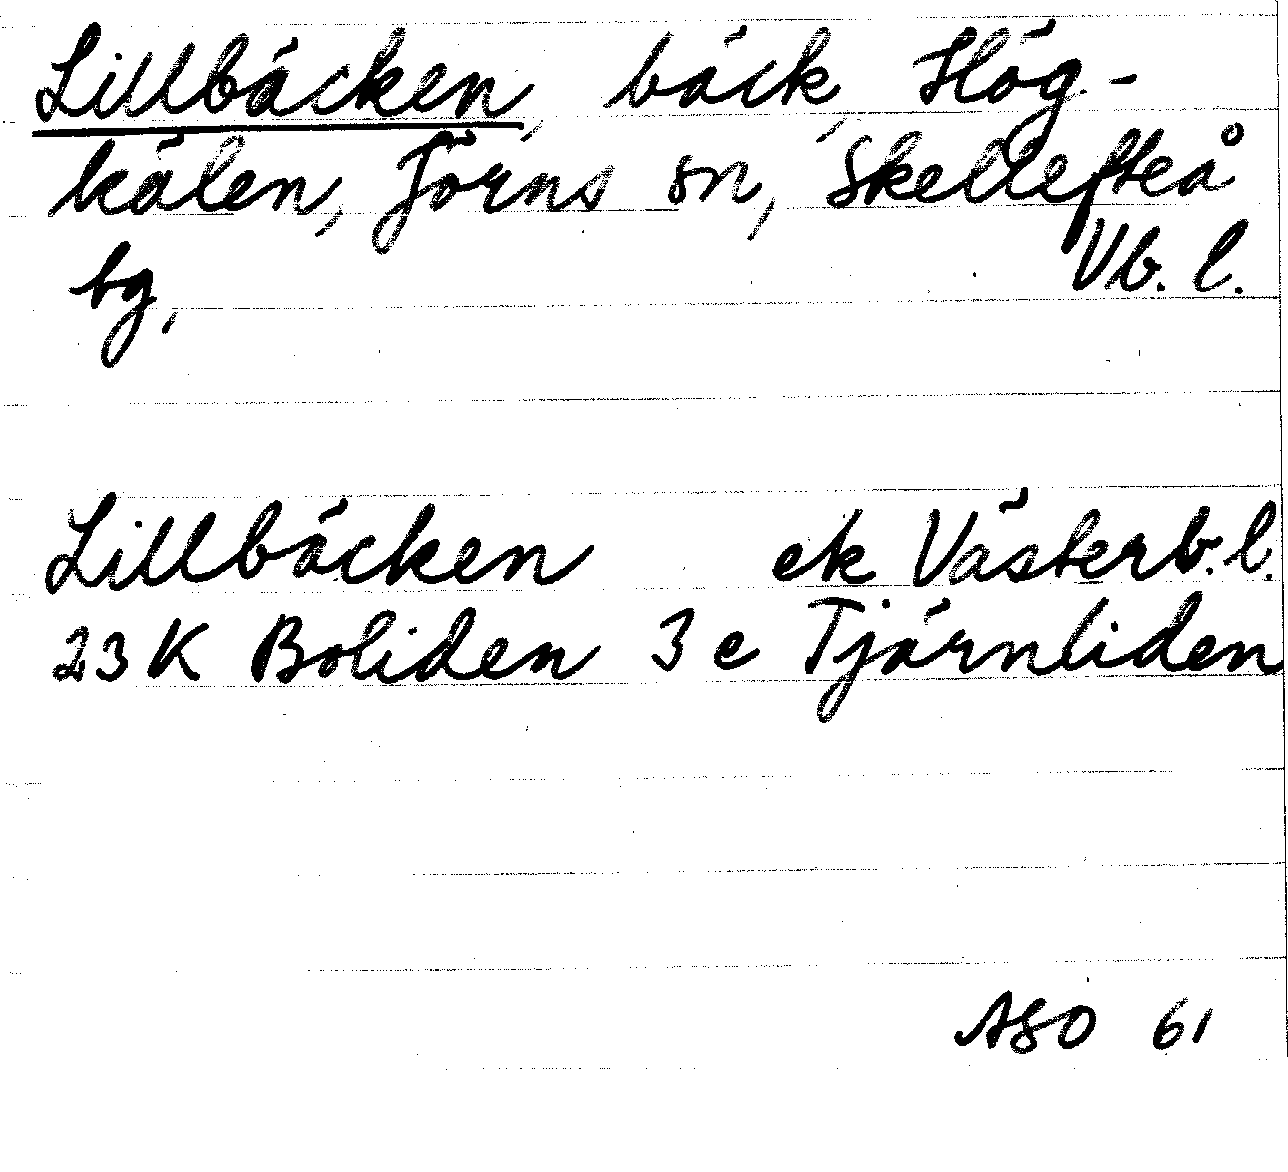 Lillbäcken, bäck, Hög-
kälen, Jörns sn, Skellefteå
bg, Vb. l.
Lillbäcken ek Västerb. l.
23 K Boliden 3 e Tjärnliden
ASO 61